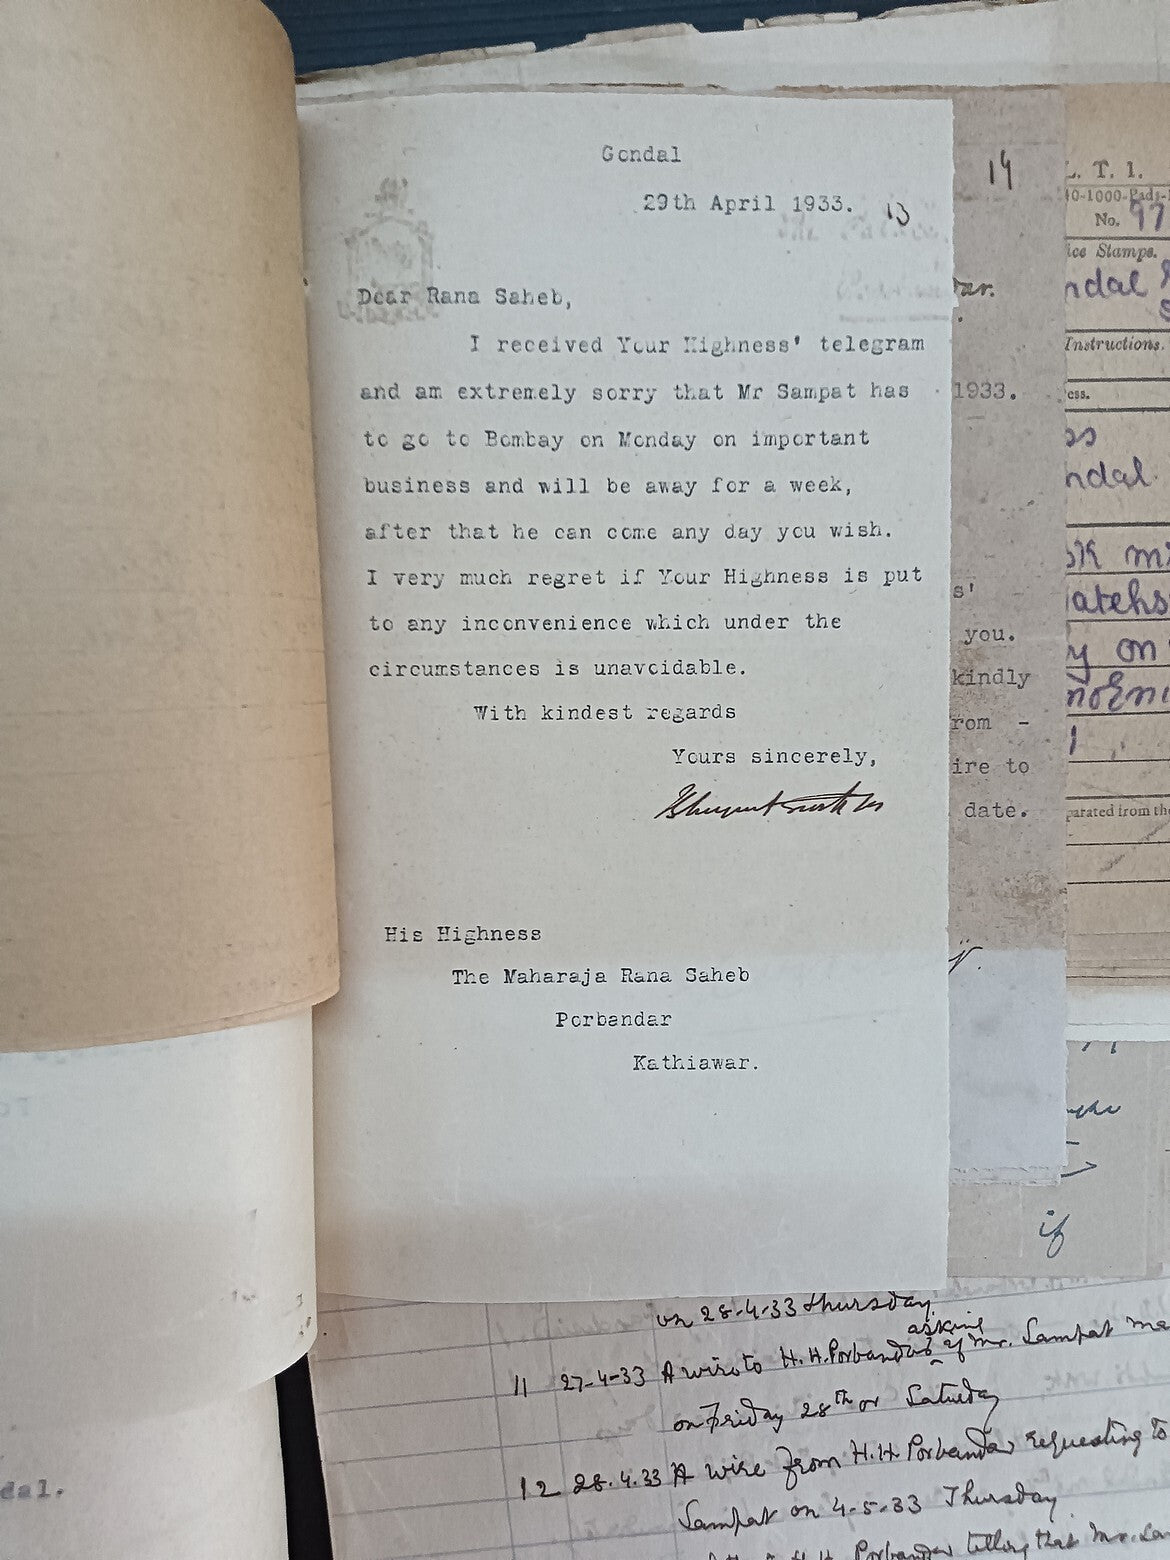 Gondal
29th April 1933.
13
Dear Rana Saheb,
I received Your Highness' telegram
and am extremely sorry that Mr Sampat has
to go to Bombay on Monday on important
business and will be away for a week,
after that he can come any day you wish.
I very much regret if Your Highness is put
to any inconvenience which under the
circumstances is unavoidable.
With kindest regards
Yours sincerely,
His Highness
The Maharaja Rana Saheb
Porbandar
Kathiawar.
14
1933.
s'
you.
kindly
rom -
ire to
date.
L. T. 1.
40-1000-Pads-
No. 97
ice Stamps.
ndal
Instructions.
ess.
ss
ndal.
atehs
y on
parated from the
if
on 28-4-33 thursday.
11 27-4-33 A wire to H.H. Porbandar asking if Mr. Sampat
on Friday 28th or Saturday
12 28.4.33 A wire from H.H Porbandar requesting to
Sampat on 4-5-33 Thursday
H.H. Porbandar telling that Mr.
dal.